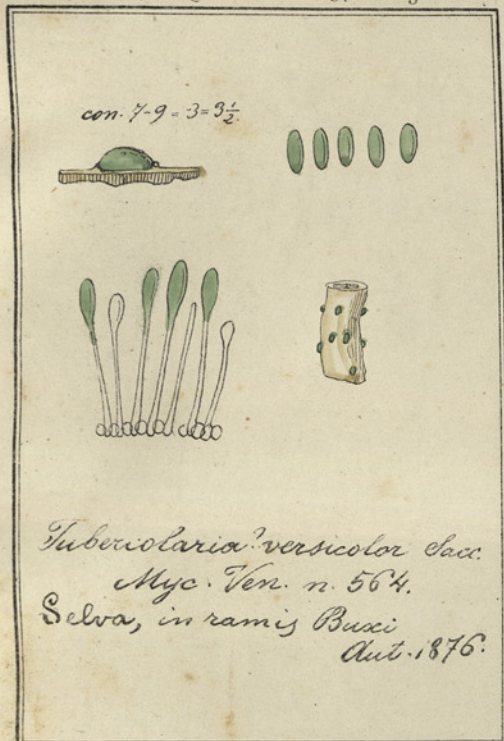 con. 7-9 = 3 = 3 1/2.
Tubercolaria? versicolor Sacc.
Myc. Ven. n. 564.
Selva, in ramis Buxi
Aut. 1876.